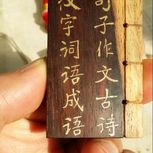 句子作文古诗
汉字词语成语